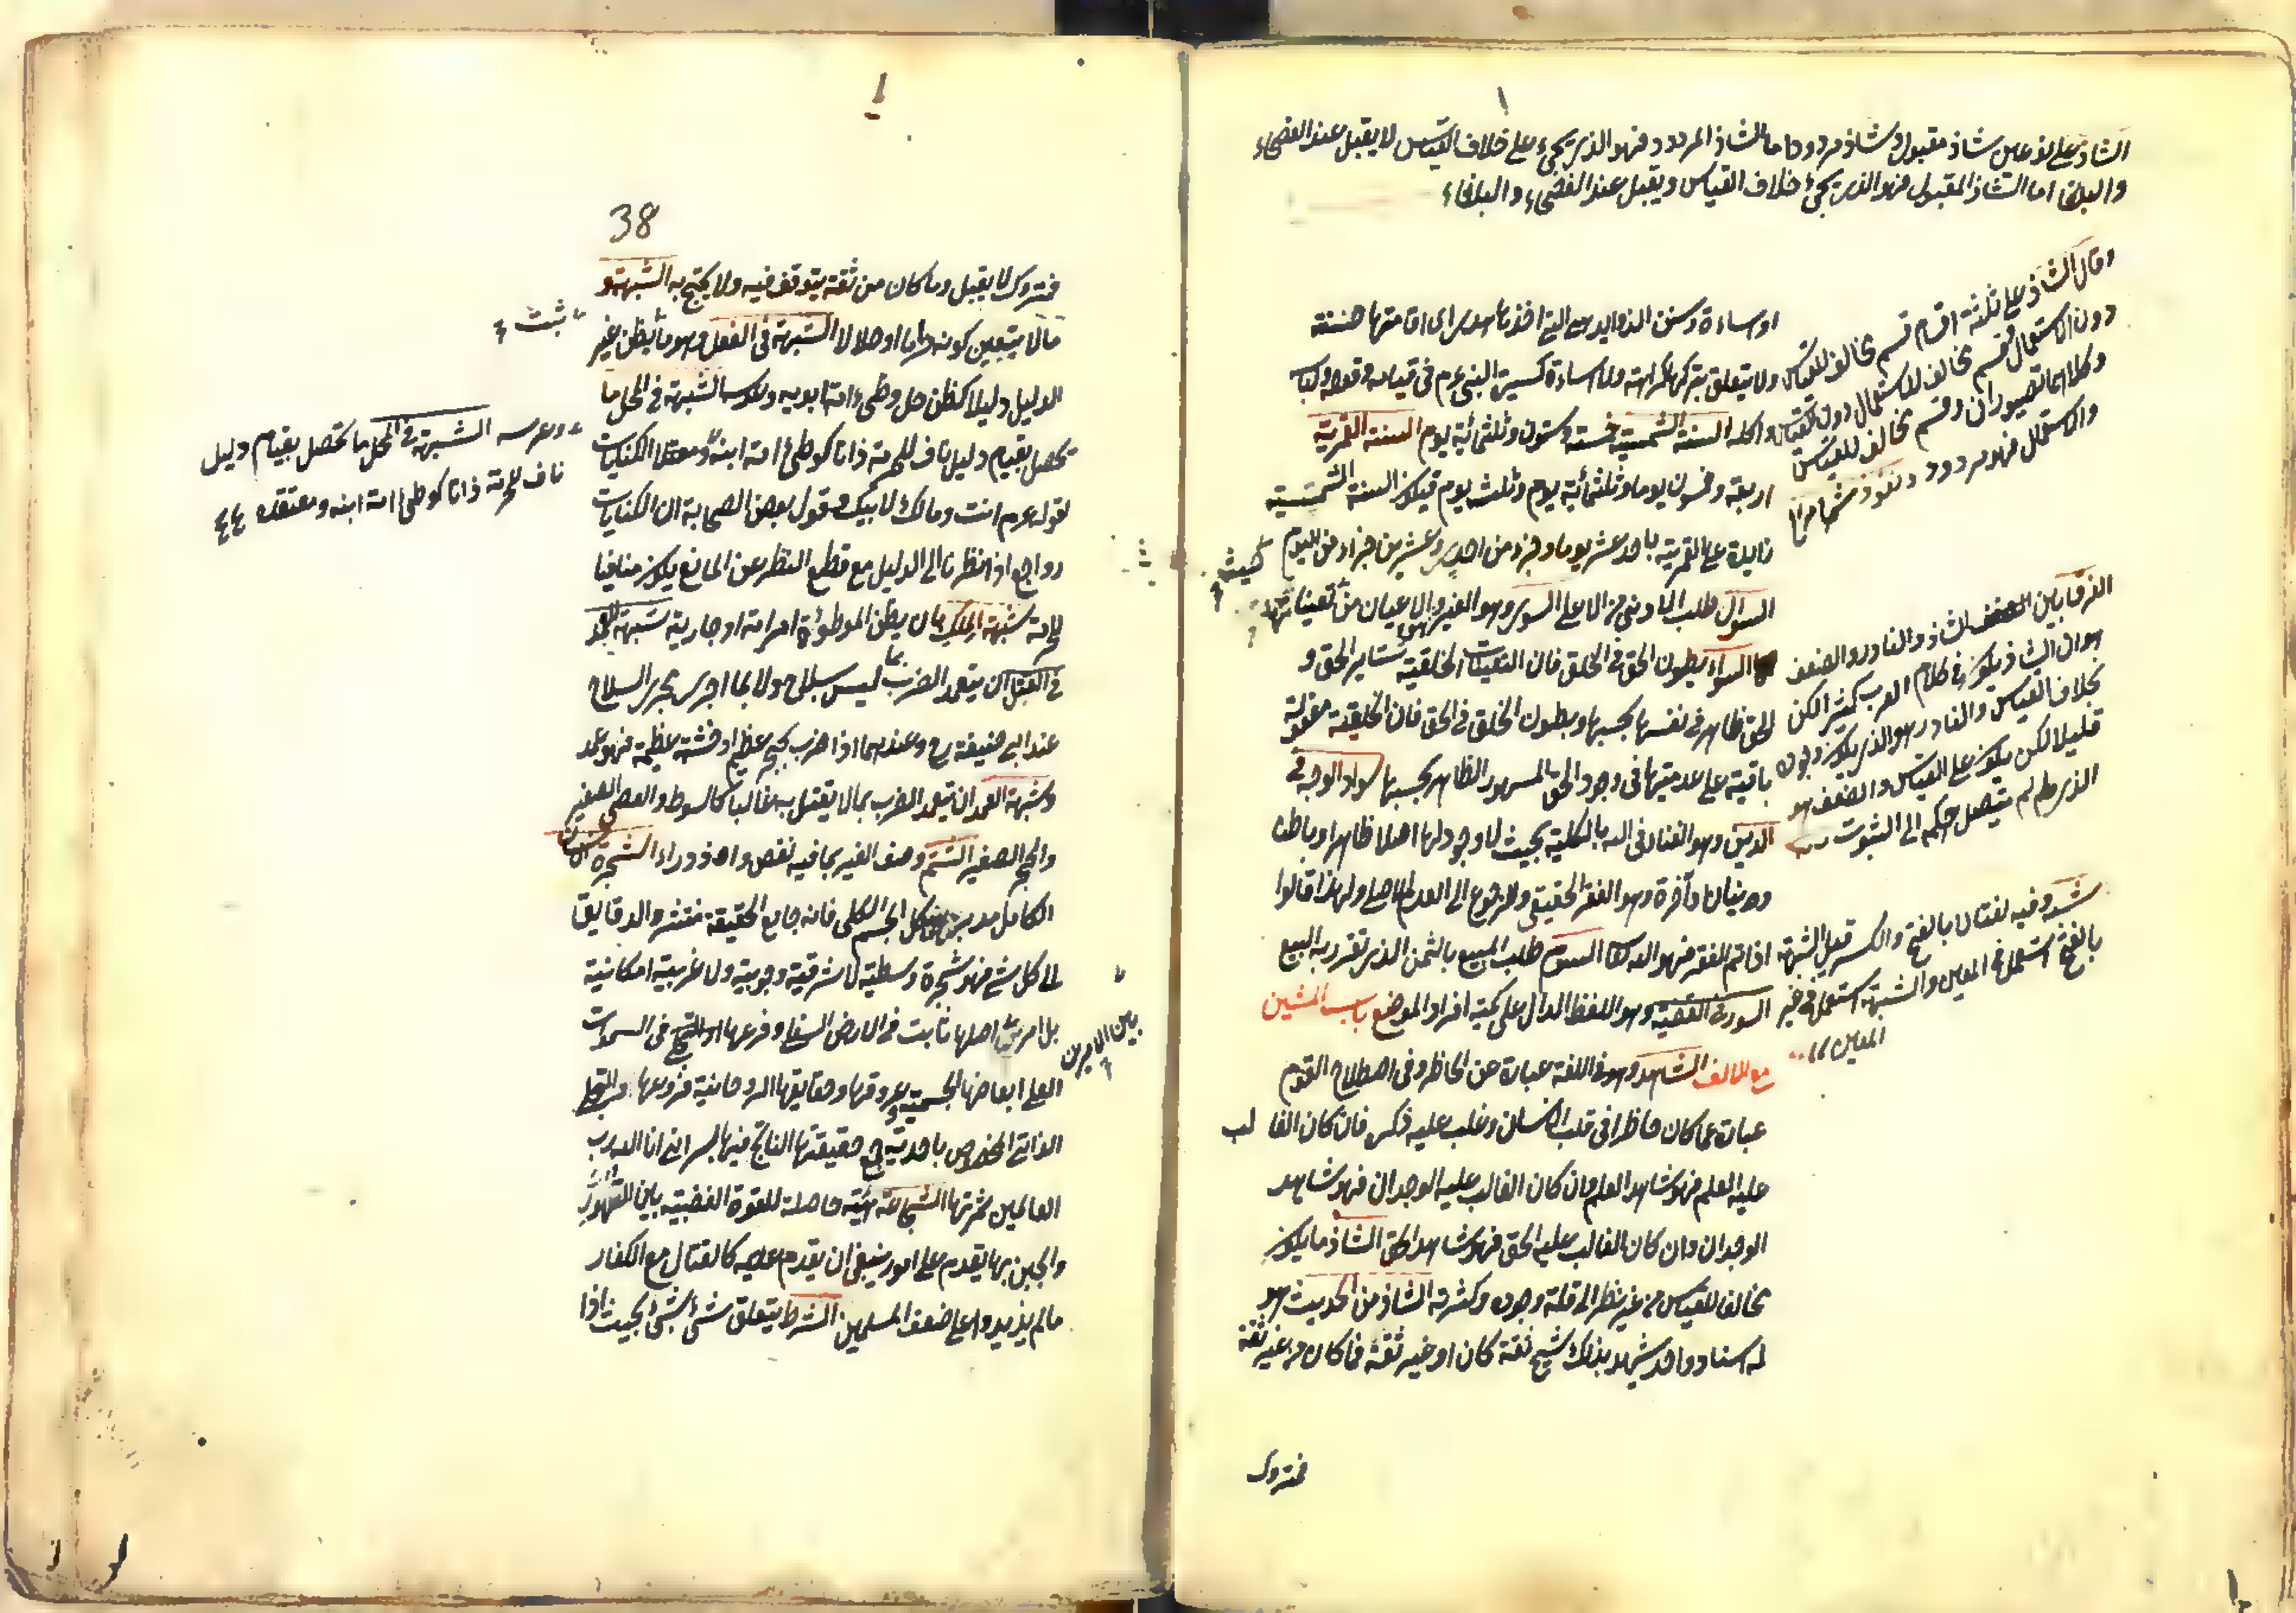 الشاذ على نوعين شاذ مقبول وشاذ مردود اما الشاذ المردود فهو الذى يجئ على خلاف القياس لا يقبل عند الفصحاء
والبلغا اما الشاذ المقبول فهو الذى يجئ خلاف القياس ويقبل عند الفصحاء والبلغاء
وقال الشاذ على ثلثة اقسام قسم مخالف للقياس
دون الاستعمال وقسم مخالف للاستعمال دون القياس
وكلاهما مقبولان وقسم مخالف للقياس
والاستعمال فهو مردود
او ساءة وسنن الزوايد هى التى اخذها هدى اى اقامتها حسنة
ولا يتعلق بتركها كراهته ولا اساءة كسير النبى عم فى قيامه وقعوده ولباسه
واكله السنة الشمسية خمسة وستون وثلثمائة يوم السنة القمرية
اربعة وخمسون يوما وثلثمائة يوم وثلث يوم فيكون السنة الشمسية
زايدة على القمرية باحد عشر يوما وجزء من احدى وعشرين جزاء من اليوم
السؤال طلب الادنى من الاعلى السوى وهو الغير والاعيان من تعيناتها
حيث
السواء بطون الحق فى الخلق فان التعينات الخلقية ستاير الحق و
الحق ظاهر فى نفسها بحسبها وبطون الخلق فى الحق فان الخلقية معقولة
باقية على عدميتها فى وجود الحق المشهود الظاهر بحسبها سواد الوجه فى
الدارين وهو الفناء فى الله بالكلية بحيث لا وجود لها اصلا ظاهرا وباطنا
ودنيا وآخرة وهو الفقر الحقيقى والرجوع الى العدم الاصلى ولهذا قالوا
اذا تم الفقر فهو الله السوم طلب المبيع بالثمن الذى تقرر به البيع
السور فى القضية وهو اللفظ الدال على كمية افراد الموضوع باب الشين
مع الالف الشاهد وهو فى اللغة عبارة عن الحاظر وفى اصطلاح القوم
عبارة عما كان حاظرا فى قلب الانسان وغلب عليه ذكره فان كان الغالب
عليه العلم فهو شاهد العلم وان كان الغالب عليه الوجدان فهو شاهد
الوجدان وان كان الغالب عليه الحق فهو شاهد الحق الشاذ ما يكون
مخالفا للقياس من غير نظر الى قلة وجوده وكثرته الشاذ من الحديث هو
له اسناد واحد شهد بذلك شيخ ثقة كان او غير ثقة فما كان من غير ثقة
فمتروك
الفرق بين الشاذ والنادر والضعف
هو ان الشاذ يكون فى كلام العرب كثيرا لكن
بخلاف القياس والنادر هو الذى يكون وجوده
قليلا لكن يكون على القياس والضعف هو
الذى لم يتصل حكمه الى الثبوت
شبه وفيه لغتان بالفتح والكسر قيل الشبهة
بالفتح استعمل فى المعين والشبهة استعمل فى غير
المعين
38
فمتروك لا يقبل وما كان من ثقة يتوقف فيه ولا يحتج به الشبهة هو
ما لا يتيقن كونه حراما او حلالا الشبهة فى الفعل وهو ما يظن غير
ثبت
الدليل دليلا كظن حل وطىء امة ابويه وعرسه الشبهة فى المحل ما
يحصل بقيام دليل ناف للحرمة ذاتا كوطىء امة ابنه ومعتدة الكنايات
لقوله عم انت ومالك لابيك وقول بعض الصحابة ان الكنايات
رواجع اذا نظرنا الى الدليل مع قطع النظر عن المانع يكون منافيا
للحرمة شبهة الملك بان يظن الموطوءة امراته او جاريته شبهة العمد
فى القتل ان يتعمد الضرب بما ليس بسلاح ولا بما اجرى مجرى السلاح
عند ابى حنيفة رح وعندهما اذا ضرب بحجر عظيم او خشبة عظيمة فهو عمد
وشبهة العمد ان يتعمد الضرب بما لا يقتل به غالبا كالسوط والعصى الصغير
والحجر الصغير الشتم وصف الغير بما فيه نقص وازدراء الشجرة الانسان
الكامل مدبر هيكل الجسم الكلى فانه جامع الحقيقة منتشر الدقايق
الى كل شىء فهو شجرة وسطية لا شرقية وجوبية ولا غربية امكانية
بل امر بين الامرين اصلها ثابت فى الارض السفلى وفرعها فى السموات
العلى ابعاضها الجسمية عروقها وحقايقها الروحانية فروعها والتجلى
الذاتى المخصوص باحدية جمع حقيقتها الناتج فيها بسر انى انا الله رب
العالمين ثمرتها الشجاعة هيئة حاصلة للقوة الغضبية بين التهور
والجبن بها يقدم على امور ينبغى ان يقدم عليه كالقتال مع الكفار
ما لم يزيدوا على ضعف المسلمين الشرط يتعلق شىء بشىء بحيث اذا
وعرسه الشبهة فى المحل ما تحصل بقيام دليل
ناف للحرمة ذاتا كوطى امة ابنه ومعتدة